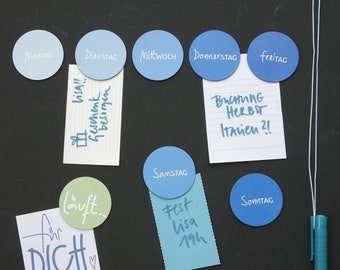 Montag
Dienstag
Mittwoch
Donnerstag
Freitag
Lisa!!
Geschenk
besorgen
Buchung
Herbst
Italien?!
Samstag
Sonntag
läuft...
Fest
Lisa
19h
Für
DICH